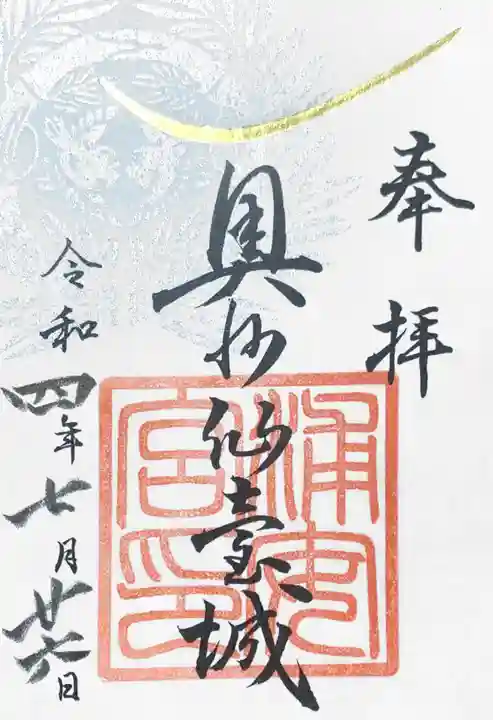 奉拝
奥州仙臺城
浦安
宮印
令和四年七月廿六日